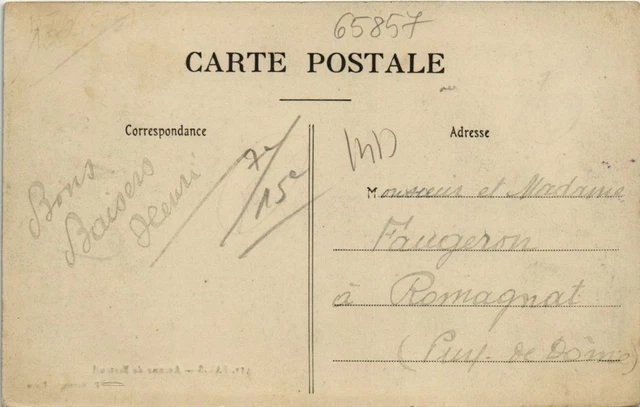 65857
CARTE POSTALE
Correspondance
Adresse
Bons
Baisers
Henri
15e
Monsieur et Madame
Faugeron
à Romagnat
(Puy-de-Dôme)